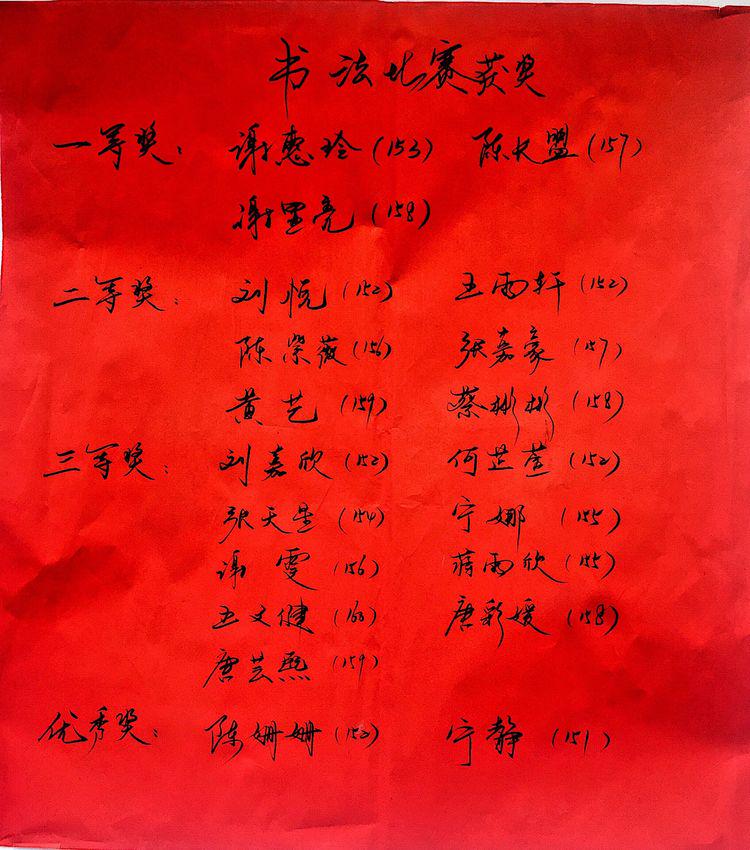 书法比赛获奖
一等奖: 谢惠玲(153) 陈大盟(157)
谢里亮(158)
二等奖: 刘悦(152) 王雨轩(152)
陈荣薇(156) 张嘉豪(157)
黄艺(159) 蔡彬彬(158)
三等奖: 刘嘉欣(152) 何芷萱(152)
张天星(154) 宁娜(155)
谭雯(156) 蒋雨欣(155)
王文健(160) 唐彩媛(158)
唐芸熙(159)
优秀奖: 陈姗姗(152) 宁静(151)